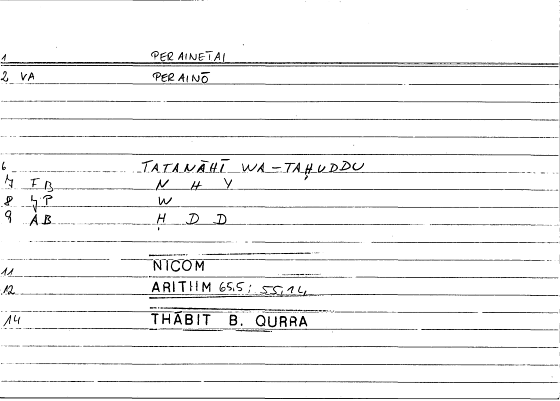 1 PERAINETAI
2 VA PERAINŌ
6 TATANĀHĪ WA-TAḤUDDU
7 FB N H Y
8 YP W
9 AB Ḥ D D
11 NICOM
12 ARITHM 65.5; 55,14
14 THĀBIT B. QURRA